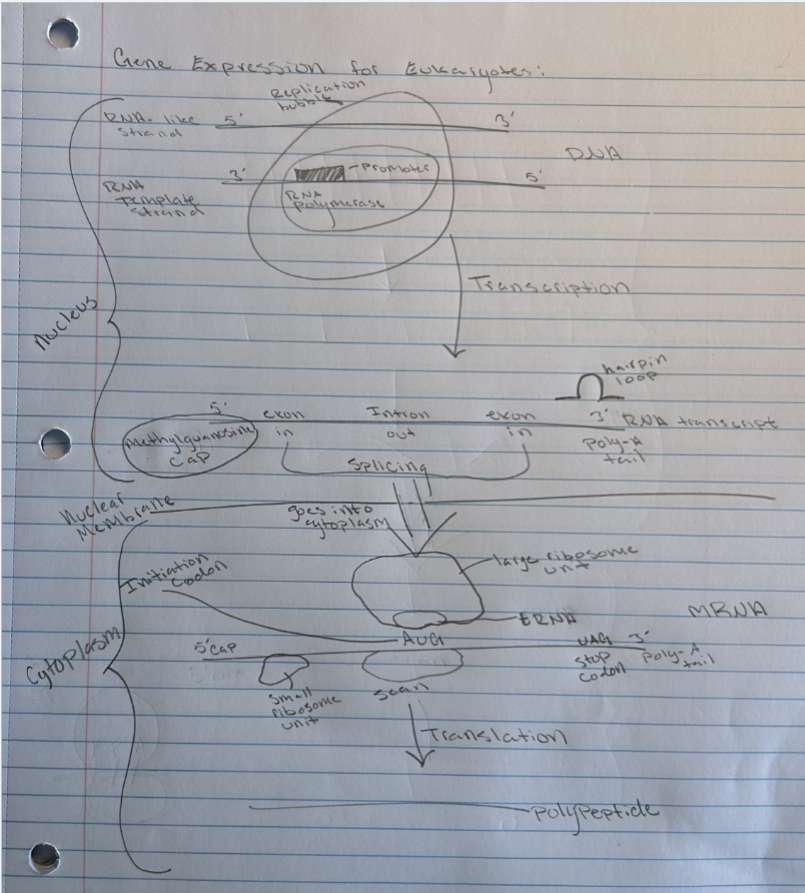 Gene Expression for Eukaryotes:
Replication
bubble
RNA-like
strand
5'
3'
DNA
3'
Promoter
5'
RNA
template
strand
RNA
polymerase
Transcription
Nucleus
hairpin
loop
5'
exon
Intron
exon
3'
RNA transcript
Methylguanosine
cap
in
out
in
Poly-A
tail
Splicing
Nuclear
Membrane
goes into
cytoplasm
Initiation
Codon
large ribosome
unit
tRNA
MRNA
Cytoplasm
5' cap
AUG
UAG
3'
stop
codon
Poly-A
tail
small
ribosome
unit
scan
Translation
Polypeptide